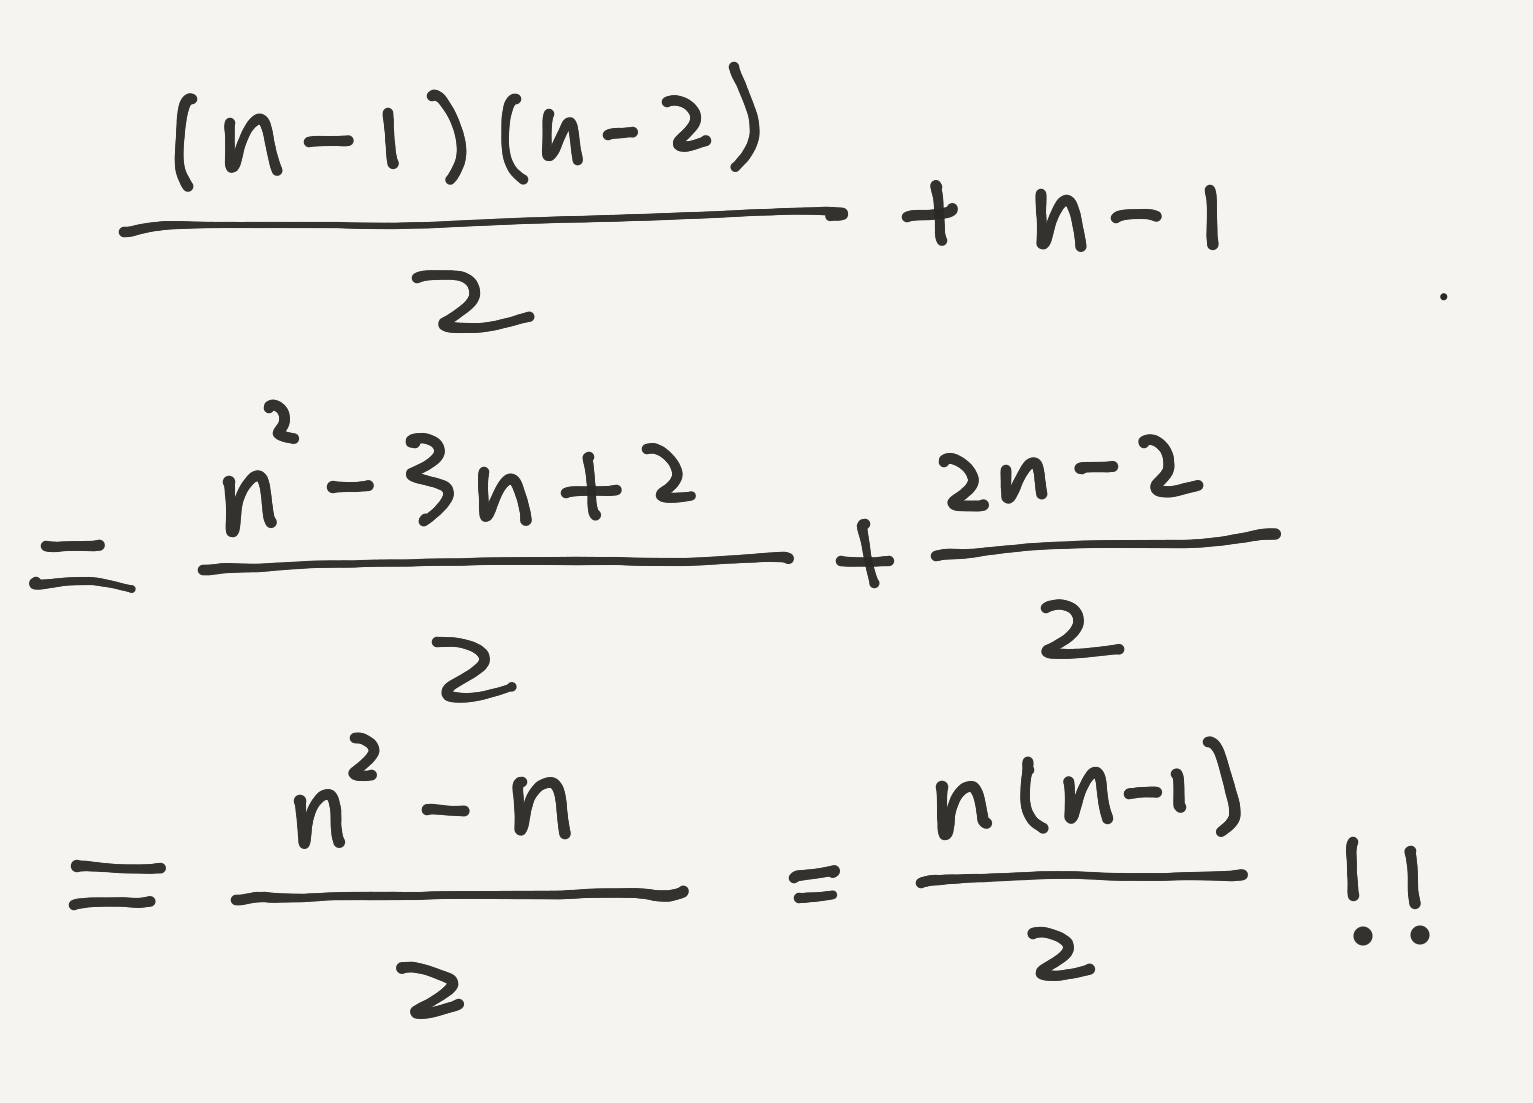 (n-1)(n-2)/2 + n-1
= n²-3n+2/2 + 2n-2/2
= n²-n/2 = n(n-1)/2 !!